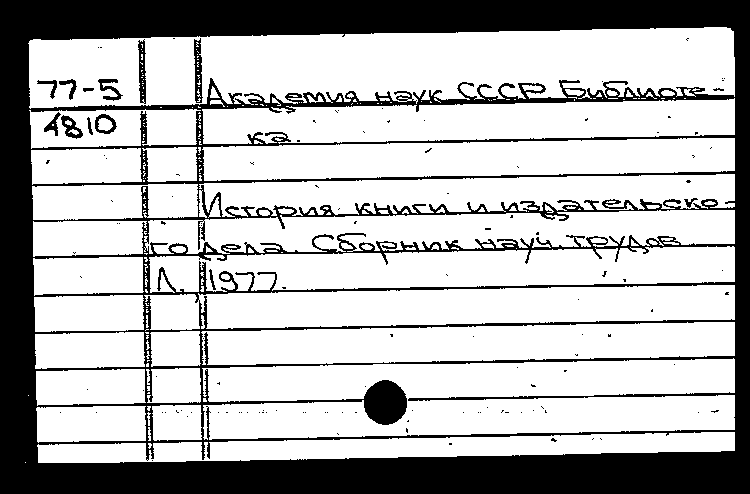 77-5 Академия наук СССР Библиоте-
4810 ка.
История книги и издательско-
го дела. Сборник науч. трудов
Л., 1977.